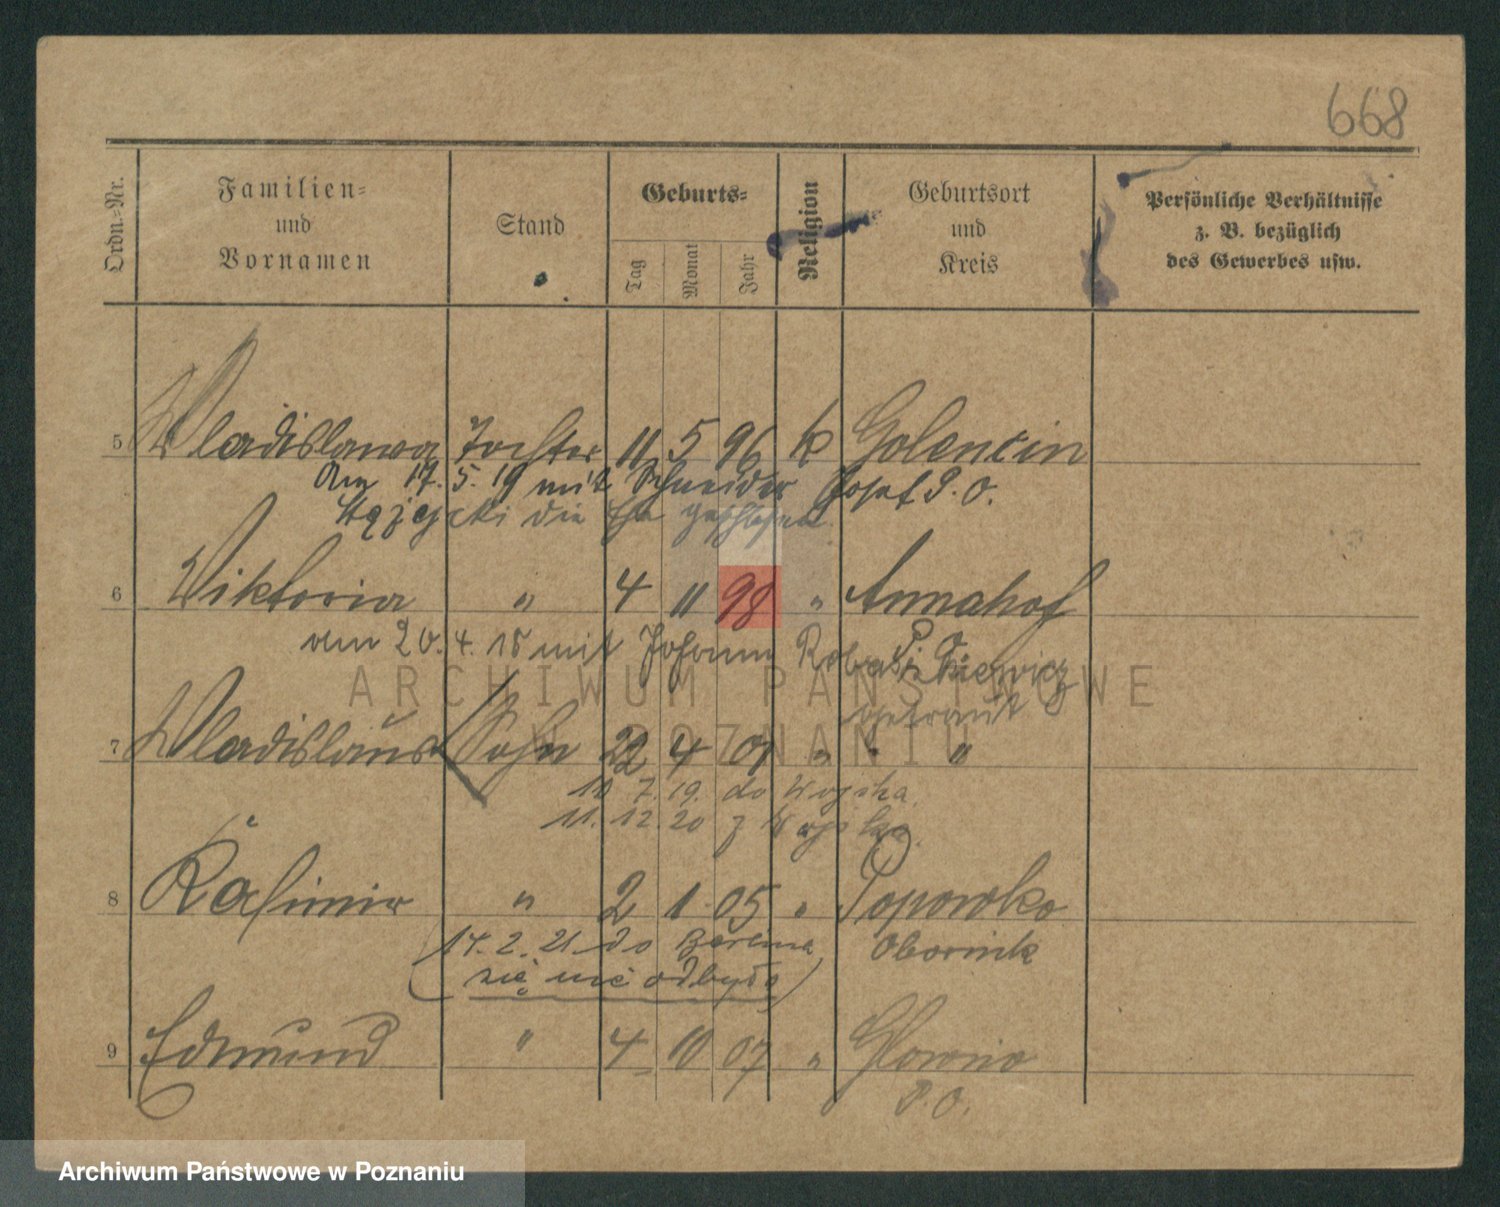 668
Ordn.=Nr.
Familien=
und
Vornamen
Stand
Geburts=
Tag
Monat
Jahr
Religion
Geburtsort
und
Kreis
Persönliche Verhältnisse
z. B. bezüglich
des Gewerbes usw.
5 Wladislawa Tochter 11 5 96 k Golencin
Am 17.5.19 mit Schneider Josef P.O.
die Ehe geschlossen.
6 Wiktoria " 4 11 98 " Annahof
P. O.
am 20.4.18 mit Johann
getraut
7 Wladislaus Sohn 22 4 01 " "
10 7. 19. do Wojska
11. 12. 20 z Wojska.
8 Kasimir " 2 1 05 " Popowko
Obornik
(14. 2. 21 do Berlina
się nie odbyło)
9 Edmund " 4 10 07 " Glowno
P. O.
ARCHIWUM PAŃSTWOWE
W POZNANIU
Archiwum Państwowe w Poznaniu